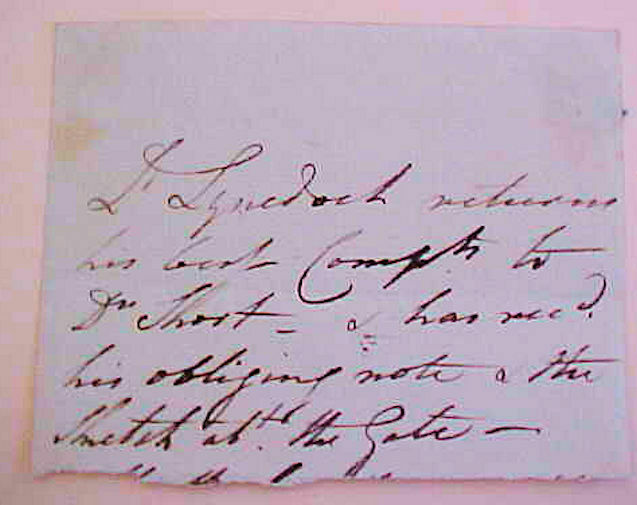 Ld Lynedoch returns
his best Compts to
Dr Short - & has recd.
his obliging note & the
Sketch abt. the Gate -